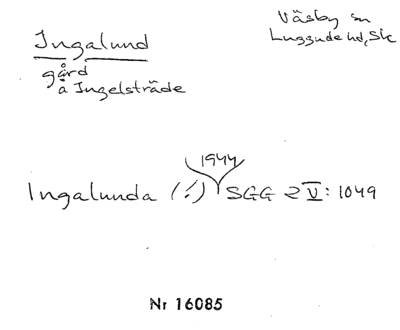 Ingalund
gård
å Ingelsträde
Väsby sn
Luggude hd, Sk
1944
Ingalunda (!) SGG 2 V: 1049
Nr 16085